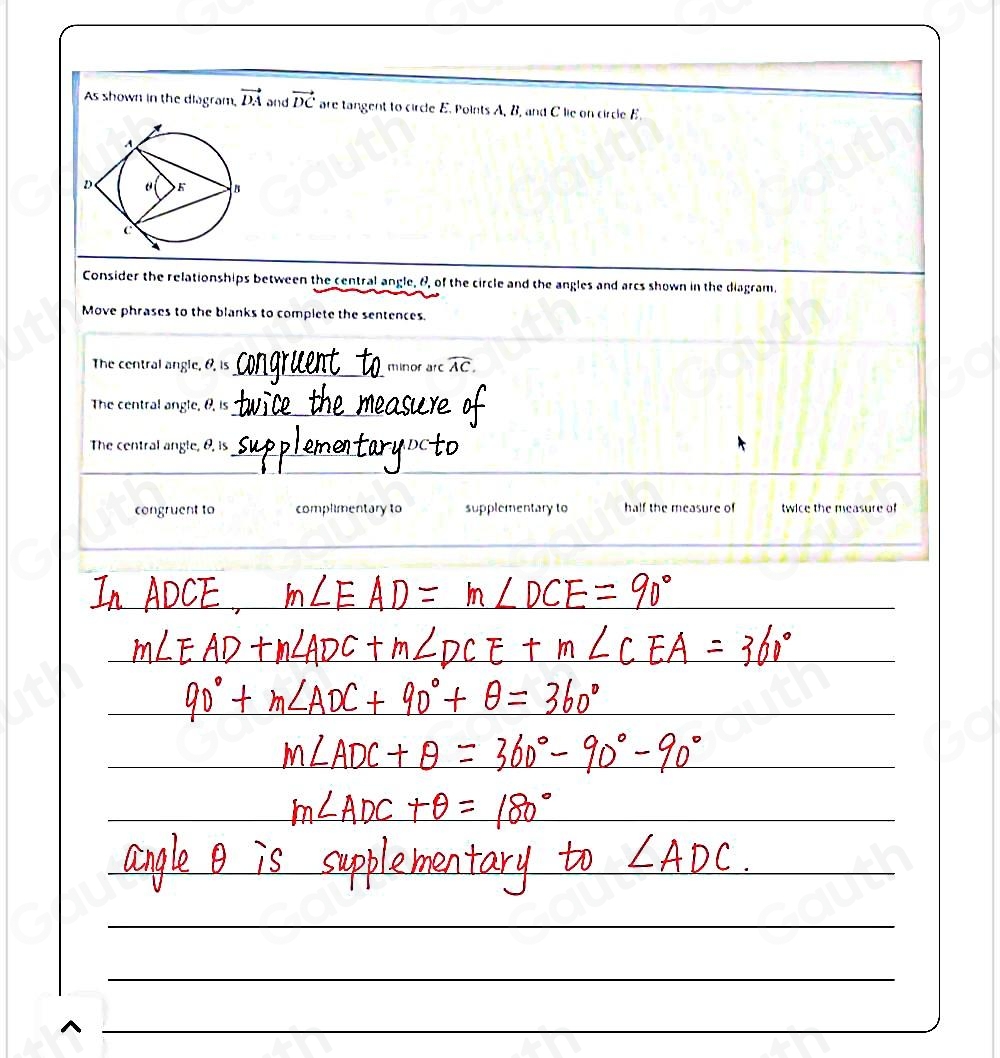 As shown in the diagram, DA and DC are tangent to circle E. Points A, B, and C lie on circle E.
A
D θ E B
C
Consider the relationships between the central angle, θ, of the circle and the angles and arcs shown in the diagram.
Move phrases to the blanks to complete the sentences.
The central angle, θ, is congruent to minor arc AC.
The central angle, θ, is twice the measure of
The central angle, θ, is supplementary DC to
congruent to complimentary to supplementary to half the measure of twice the measure of
In ADCE, m∠EAD = m∠DCE = 90°
m∠EAD + m∠ADC + m∠DCE + m∠CEA = 360°
90° + m∠ADC + 90° + θ = 360°
m∠ADC + θ = 360° - 90° - 90°
m∠ADC + θ = 180°
angle θ is supplementary to ∠ADC.